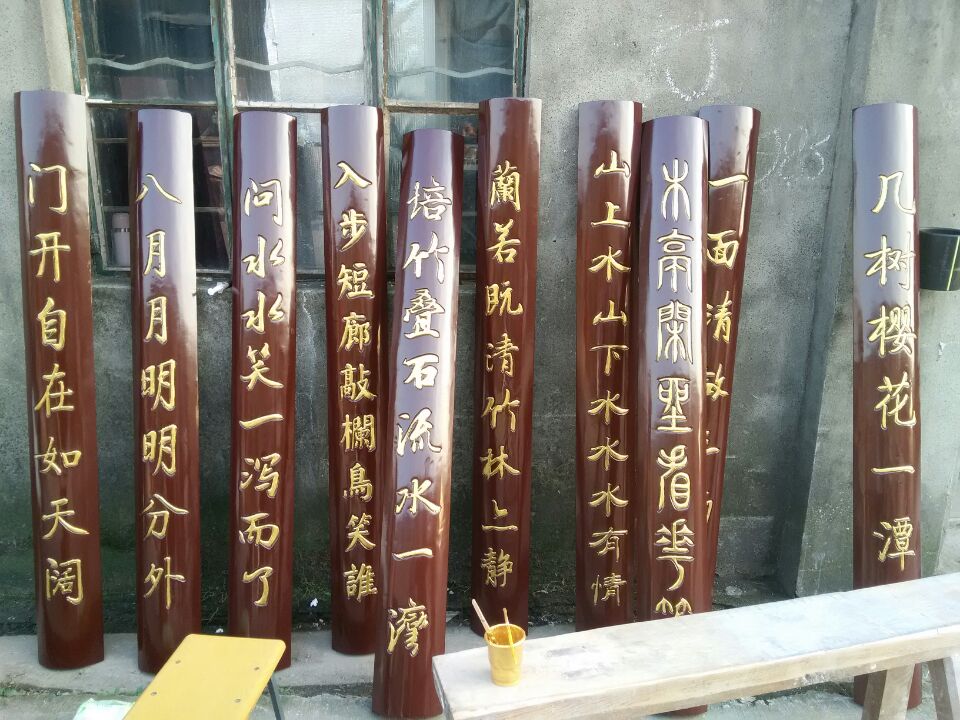 门开自在如天阔
八月月明明分外
问水水笑一泻而了
入步短廊敲欄鳥笑誰
培竹叠石流水一灣
蘭若既清竹林上静
山上水山下水水水有情
木
一面清
几树樱花一潭